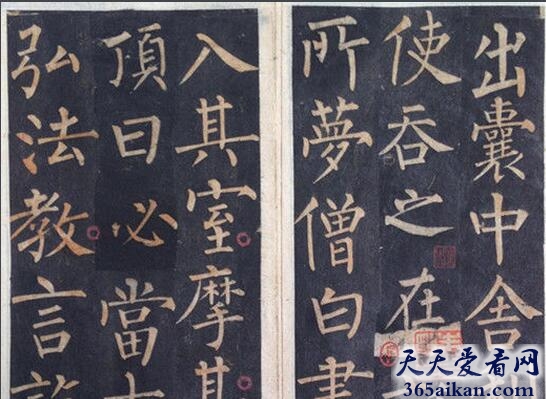 出囊中舍
使吞之在
所夢僧白晝
入其室摩其
頂曰必當大
弘法教言訖
天天爱看网
365aikan.com